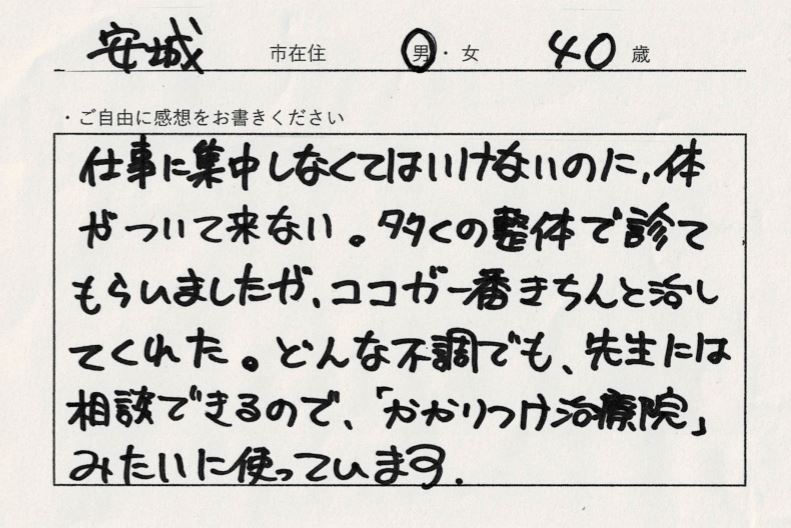 安城 市在住 男・女 40 歳
・ご自由に感想をお書きください
仕事に集中しなくてはいけないのに、体
がついて来ない。多くの整体で診て
もらいましたが、ココが一番きちんと治し
てくれた。どんな不調でも、先生には
相談できるので、「かかりつけ治療院」
みたいに使っています.